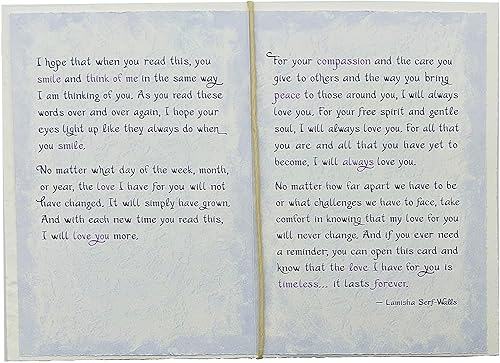 I hope that when you read this, you
smile and think of me in the same way
I am thinking of you. As you read these
words over and over again, I hope your
eyes light up like they always do when
you smile.
No matter what day of the week, month,
or year, the love I have for you will not
have changed. It will simply have grown.
And with each new time you read this,
I will love you more.
For your compassion and the care you
give to others and the way you bring
peace to those around you, I will always
love you. For your free spirit and gentle
soul, I will always love you. For all that
you are and all that you have yet to
become, I will always love you.
No matter how far apart we have to be
or what challenges we have to face, take
comfort in knowing that my love for you
will never change. And if you ever need
a reminder, you can open this card and
know that the love I have for you is
timeless... it lasts forever.
— Lamisha Serf-Walls